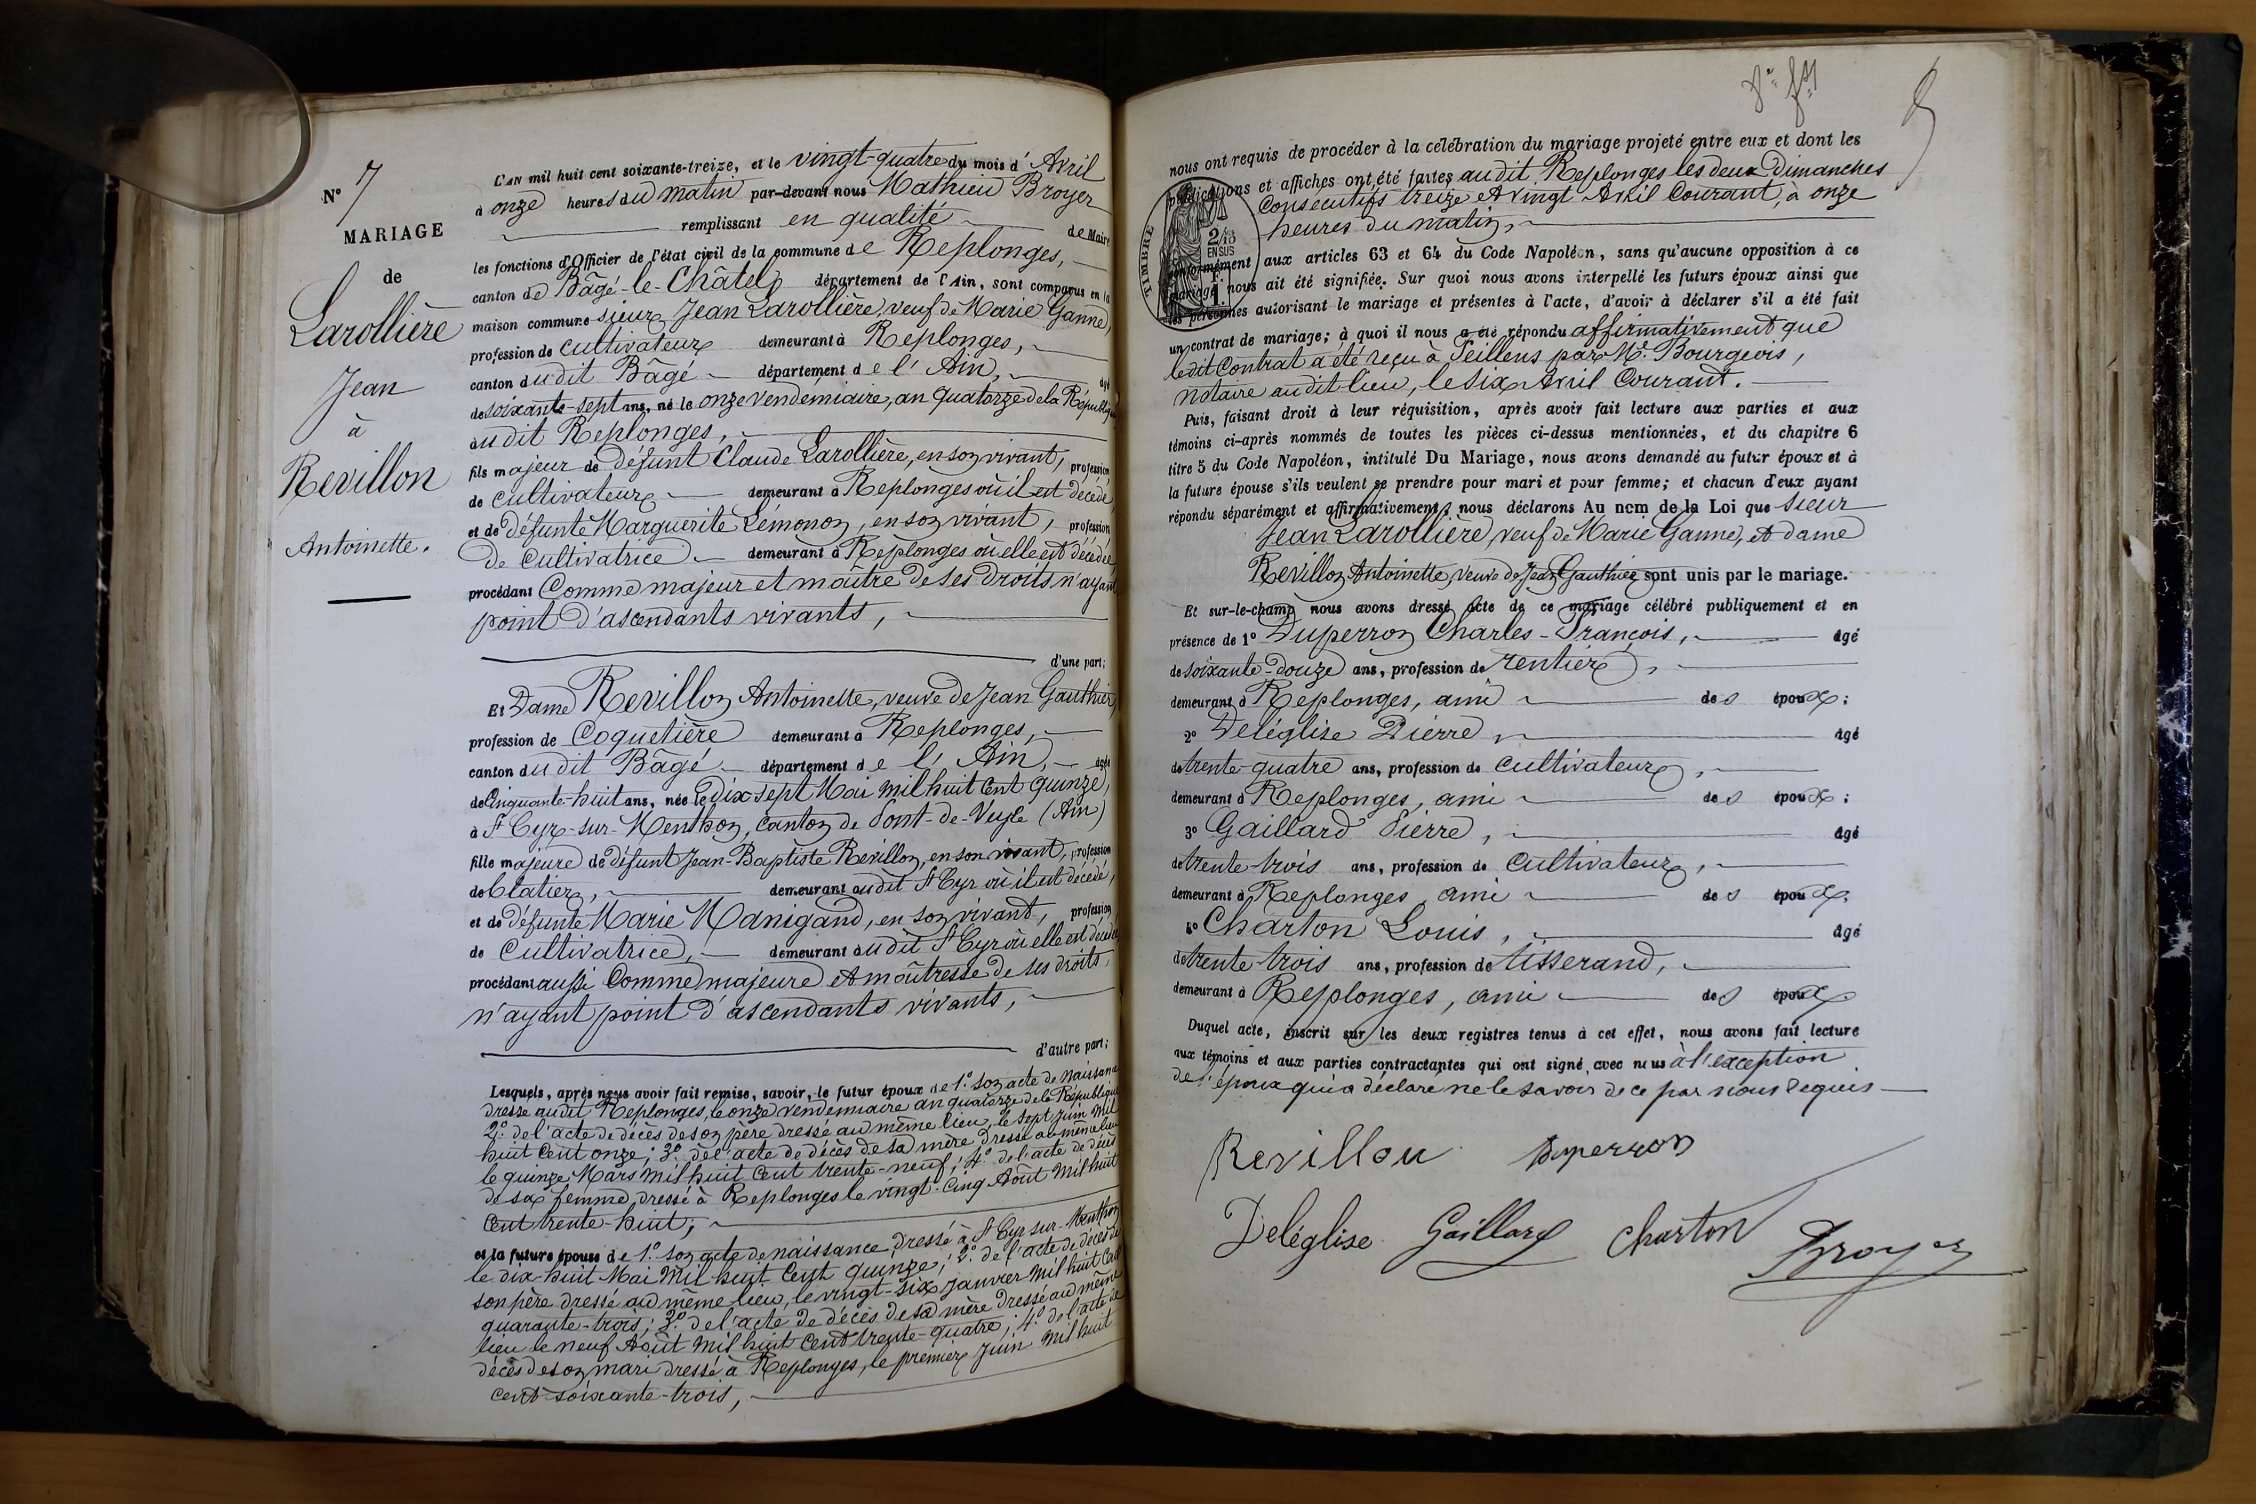 N° 7
MARIAGE
de
Larollière
Jean
à
Revillon
Antoinette.
L'AN mil huit cent soixante-treize, et le vingt-quatre du mois d'Avril
à onze heures du matin par-devant nous Mathieu Broyer
remplissant en qualité de Maire
les fonctions d'Officier de l'état civil de la commune de Replonges,
canton de Bâgé-le-Châtel département de l'Ain, sont comparus en la
maison commune sieur Jean Larollière, veuf de Marie Ganne,
profession de cultivateur demeurant à Replonges,
canton dudit Bâgé département de l'Ain, âgé
de soixante-sept ans, né le onze vendémiaire, an quatorze de la République
audit Replonges,
fils majeur de défunt Claude Larollière, en son vivant, profession
de cultivateur demeurant à Replonges où il est décédé,
et de défunte Marguerite Lémonon, en son vivant, profession
de cultivatrice demeurant à Replonges où elle est décédée,
procédant Comme majeur et maître de ses droits n'ayant
point d'ascendants vivants,
d'une part;
Et Dame Revillon Antoinette, veuve de Jean Gauthier,
profession de Coquetière demeurant à Replonges,
canton dudit Bâgé département de l'Ain, âgée
de Cinquante-huit ans, née le dix sept Mai mil huit Cent quinze,
à St Cyr-sur-Menthon, canton de Pont-de-Veyle (Ain)
fille majeure de défunt Jean-Baptiste Revillon, en son vivant, profession
de blatier, demeurant audit St Cyr où il est décédé,
et de défunte Marie Manigand, en son vivant, profession
de Cultivatrice, demeurant audit St Cyr où elle est décédée
procédant aussi Comme majeure et maîtresse de ses droits,
n'ayant point d'ascendants vivants,
d'autre part;
Lesquels, après nous avoir fait remise, savoir, le futur époux de 1.° son acte de Naissance
dressé audit Replonges, le onze vendémiaire an quatorze de la République
2.° de l'acte de décès de son père dressé au même lieu, le sept Juin mil
huit Cent onze; 3.° de l'acte de décès de sa mère dressé au même lieu
le quinze Mars mil huit Cent trente-neuf; 4.° de l'acte de décès
de sa femme, dressé à Replonges le vingt-Cinq Août Mil huit
Cent trente-huit;
et la future épouse de 1.° son acte de naissance, dressé à St Cyr-sur-Menthon
le dix-huit Mai Mil huit Cent quinze; 2.° de l'acte de décès de
son père dressé au même lieu, le vingt-six Janvier mil huit Cent
quarante-trois; 3.° de l'acte de décès de sa mère dressé au même
lieu le neuf Août mil huit Cent trente-quatre; 4.° de l'acte de
décès de son mari dressé à Replonges, le premier Juin mil huit
cent soixante-trois,
nous ont requis de procéder à la célébration du mariage projeté entre eux et dont les
publications et affiches ont été faites audit Replonges les deux Dimanches
Consécutifs treize et vingt Avril Courant, à onze
heures du matin,
TIMBRE
2/10
EN SUS
1 F.
conformément aux articles 63 et 64 du Code Napoléon, sans qu'aucune opposition à ce
mariage nous ait été signifiée. Sur quoi nous avons interpellé les futurs époux ainsi que
les personnes autorisant le mariage et présentes à l'acte, d'avoir à déclarer s'il a été fait
un contrat de mariage; à quoi il nous a été répondu affirmativement que
ledit Contrat a été reçu à Feillens par Me. Bourgeois,
notaire audit lieu, le six Avril Courant.
Puis, faisant droit à leur réquisition, après avoir fait lecture aux parties et aux
témoins ci-après nommés de toutes les pièces ci-dessus mentionnées, et du chapitre 6
titre 5 du Code Napoléon, intitulé Du Mariage, nous avons demandé au futur époux et à
la future épouse s'ils veulent se prendre pour mari et pour femme; et chacun d'eux ayant
répondu séparément et affirmativement, nous déclarons Au nom de la Loi que sieur
Jean Larollière, veuf de Marie Ganne, et dame
Revillon Antoinette, veuve de Jean Gauthier sont unis par le mariage.
Et sur-le-champ nous avons dressé acte de ce mariage célébré publiquement et en
présence de 1° Duperron Charles-François, âgé
de soixante-douze ans, profession de rentier,
demeurant à Replonges, ami des époux;
2° Deléglise Pierre, âgé
de trente-quatre ans, profession de cultivateur,
demeurant à Replonges, ami des époux;
3° Gaillard Pierre, âgé
de trente-trois ans, profession de cultivateur,
demeurant à Replonges, ami des époux,
4° Charton Louis, âgé
de trente-trois ans, profession de tisserand,
demeurant à Replonges, ami des époux.
Duquel acte, inscrit sur les deux registres tenus à cet effet, nous avons fait lecture
aux témoins et aux parties contractantes qui ont signé avec nous à l'exception
de l'époux qui a déclaré ne le savoir de ce par nous requis
Revillon Duperron
Deléglise Gaillard Charton Broyer